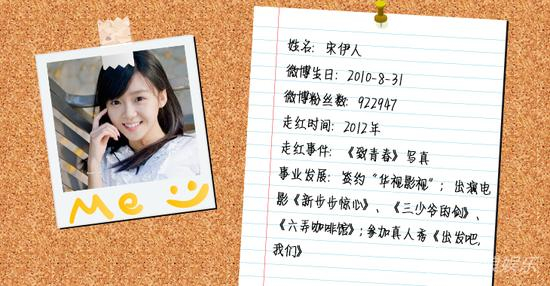 Me
姓名：宋伊人
微博生日：2010-8-31
微博粉丝数：922947
走红时间：2012年
走红事件：《致青春》写真
事业发展：签约“华视影视”；出演电
影《新步步惊心》、《三少爷的剑》、
《六弄咖啡馆》；参加真人秀《出发吧，
我们》
娱乐